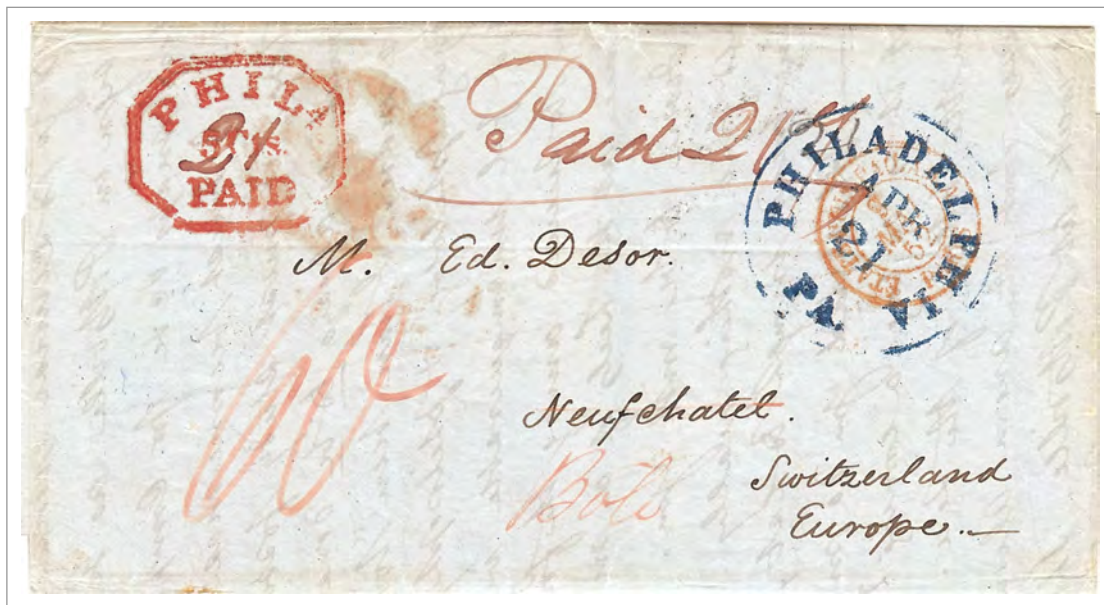 PHILA
21
PAID
Paid 21
PHILADELPHIA
APR
21
PA.
M. Ed. Desor.
60
Neufchatel.
Bôle
Switzerland
Europe.